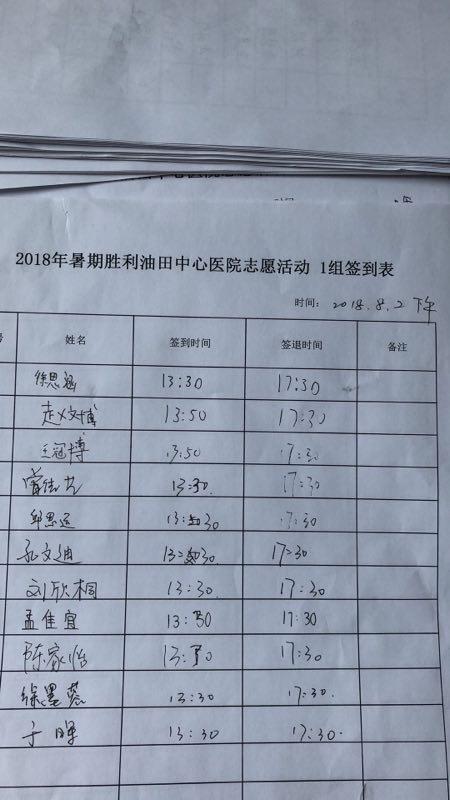 2018年暑期胜利油田中心医院志愿活动 1组签到表
时间： 2018.8.2 下午
号 姓名 签到时间 签退时间 备注
徐思涵 13:30 17:30
赵文博 13:50 17:30
王冠博 13:50 17:30
13:30. 17:30
邱思远 13:30 17:30
孔文迪 13:30. 17:30
刘欣桐 13:30. 17:30
孟佳宜 13:30 17:30
陈家怡 13:30 17:30
徐墨蕊 13:30 17:30.
于晖 13:30 17:30.